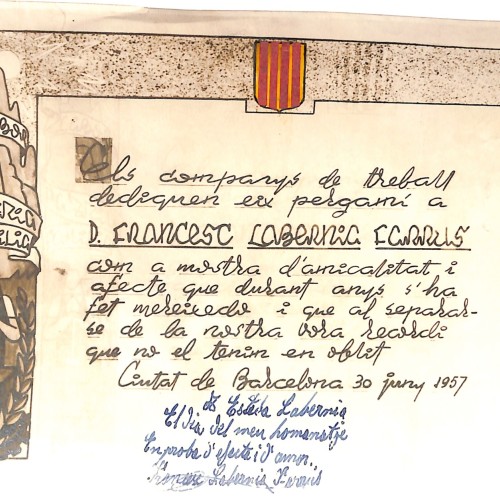 Els companys de treball
dediquen eix pergamí a
D. FRANCESC LABERNIA
com a mostra d'amicalitat i
afecte que durant anys s'ha
fet mereixedo i que al separar-
se de la nostra vora recordi
que no el tenin en oblit
Ciutat de Barcelona 30 juny 1957
Estela Labernia
El dia del meu homanatje
En proba d'efecte i d'amor.
Labernia